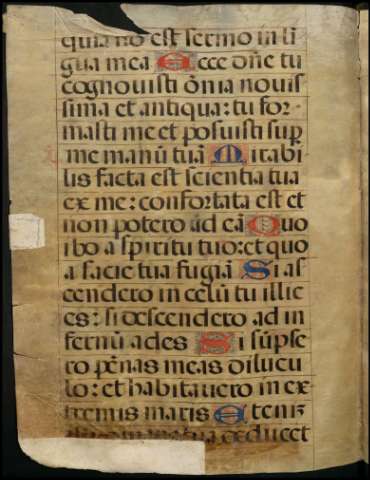 quia nō est sermo in li
gua mea Ecce dn̄e tu
cognouisti ōnia nouis
sima et antiqua: tu for
masti me et posuisti sup
me manū tuā Mirabi
lis facta est scientia tua
ex me: confortata est et
non potero ad eā Quo
ibo a spiritu tuo: et quo
a facie tua fugiā Si as
cendero in celū tu illic
es: si descendero ad in
fernū ades Si sūpse
ro pēnas meas dilucu
lo: et habitauero in ex
tremis maris Eteni
manus tua deducet